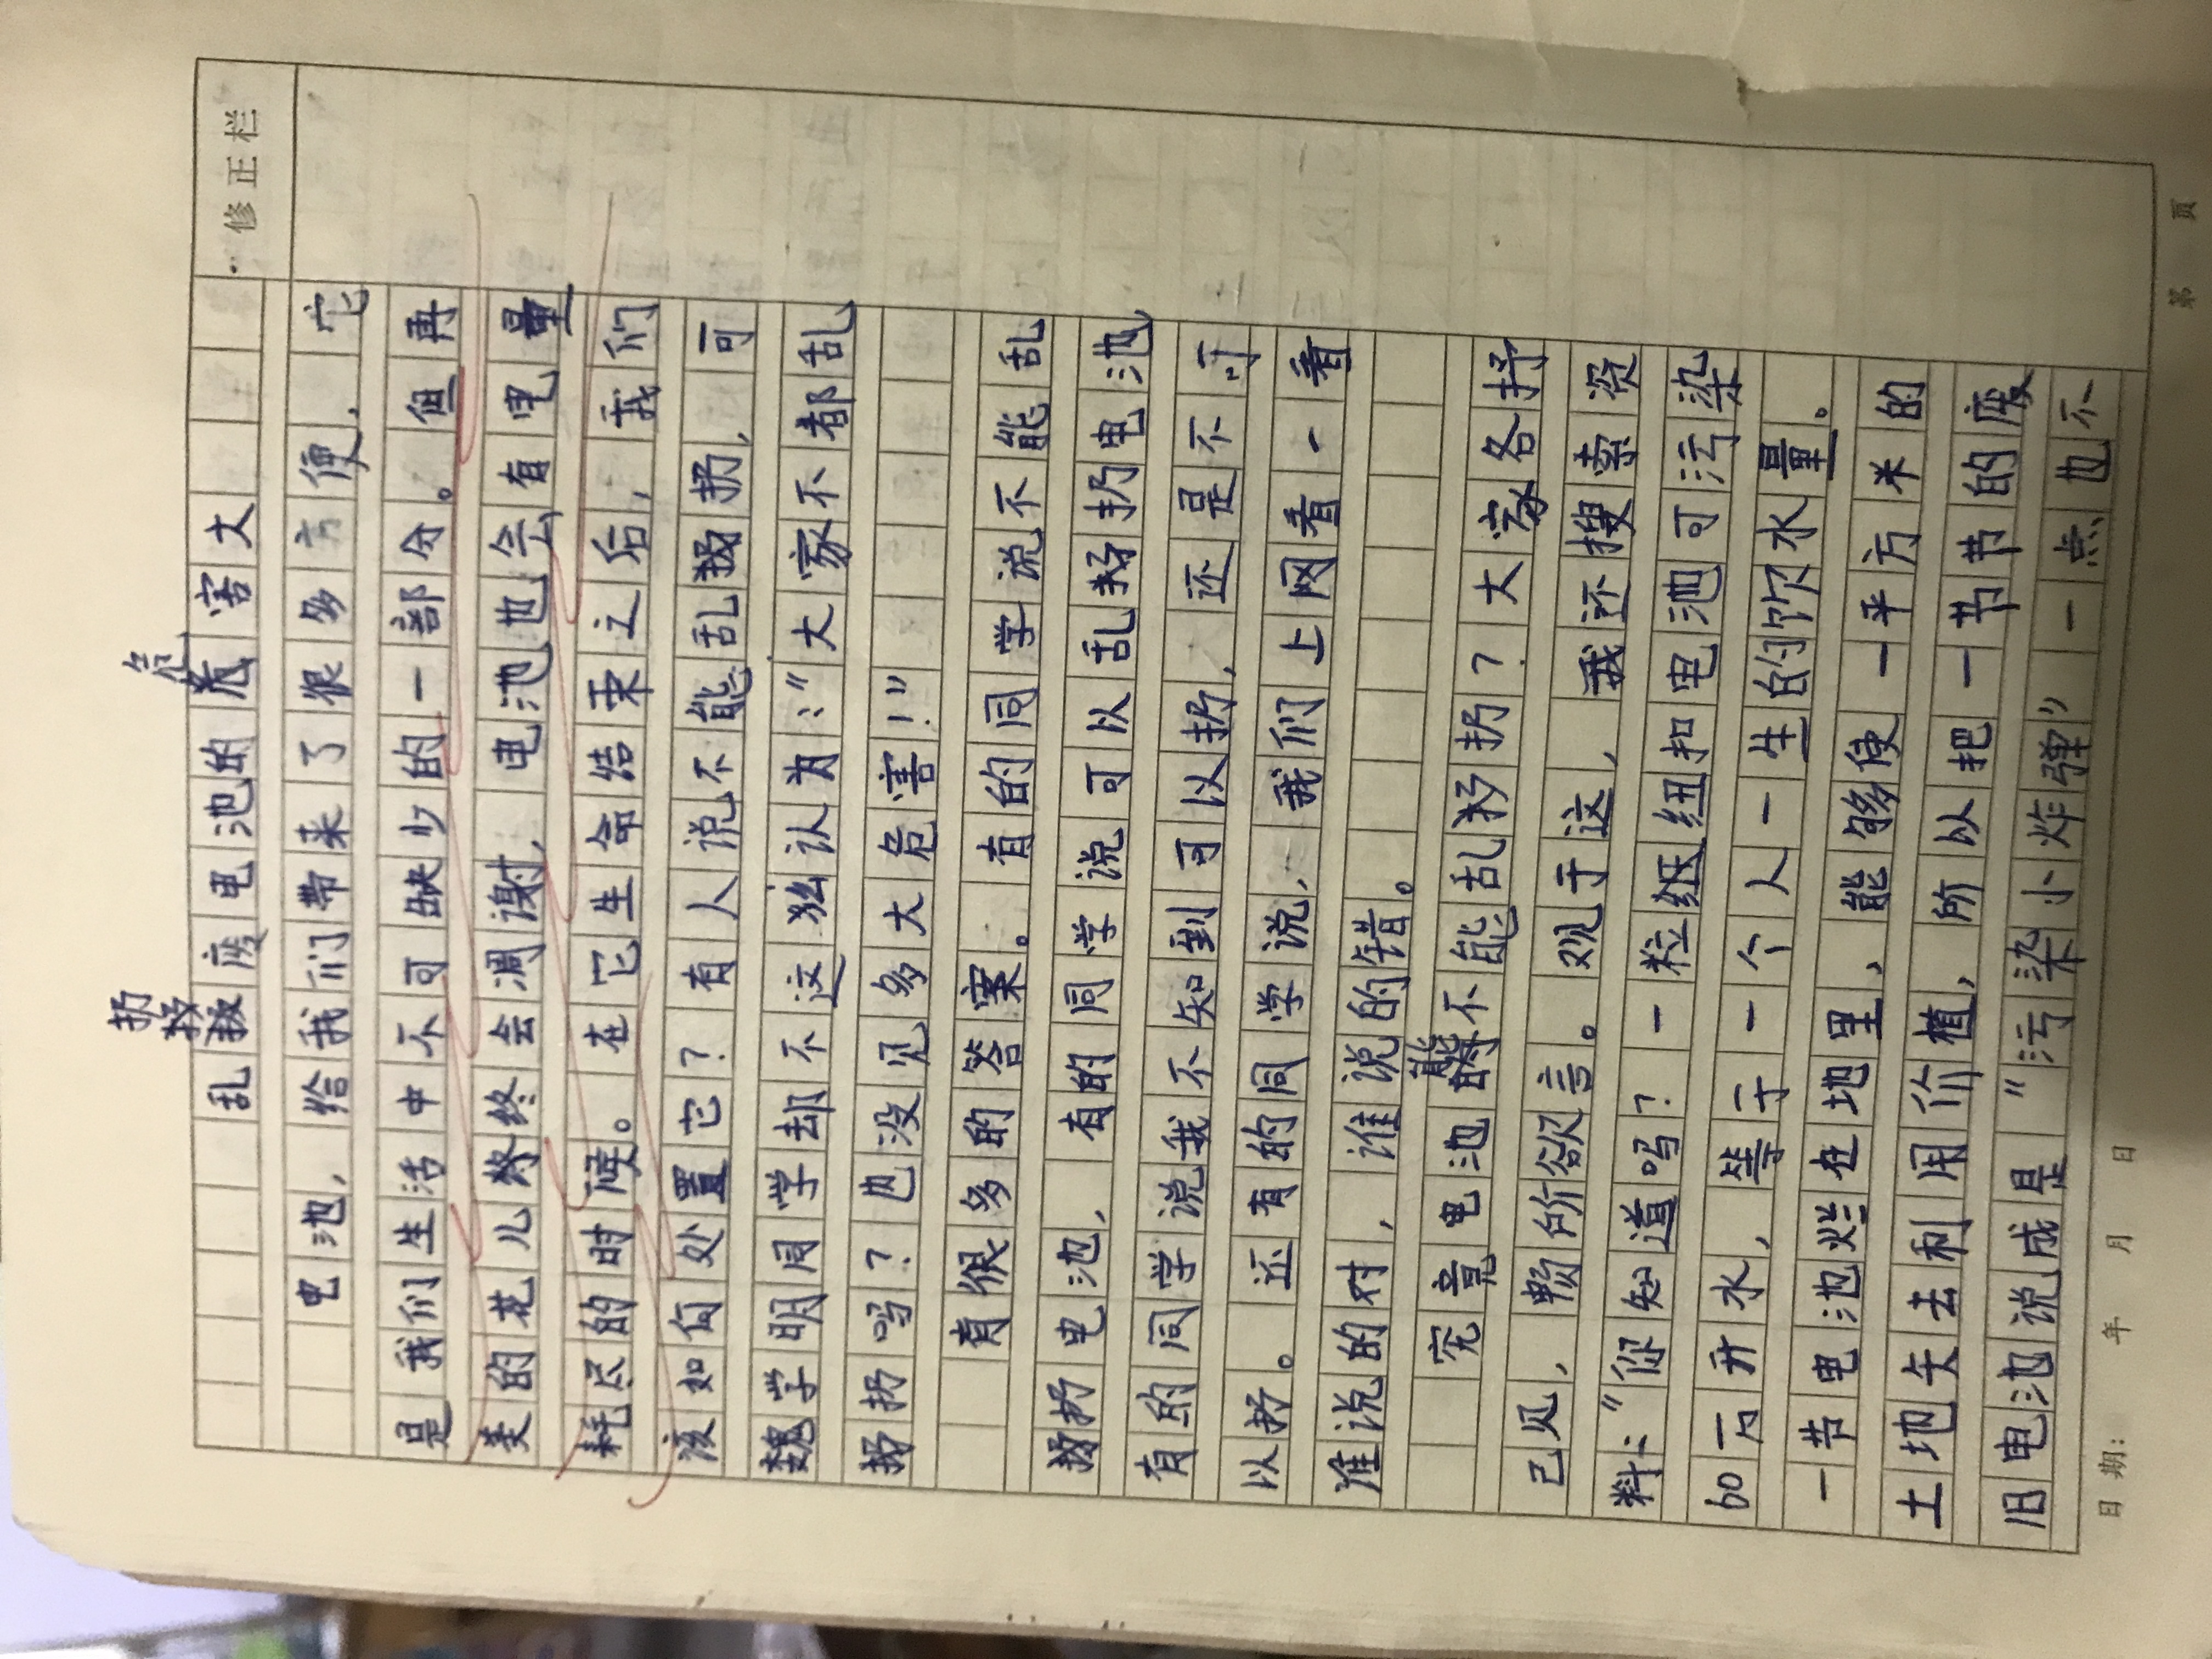 修正栏
扔
危
乱扔废电池的危害大
电池,给我们带来了很多方便,它
是我们生活中不可缺少的一部分。但再
美的花儿终终会凋谢,电池也会有电量
耗尽的时候。在它生命结束之后,我们
该如何处置它?有人说不能乱扔,可
魏学明同学却不这么认为:“大家不都乱
扔吗?也没见多大危害!”
有很多的答案。有的同学说不能乱
扔电池,有的同学说可以乱扔电池
有的同学说我不知到可以扔,还是不可
以扔。还有的同学说,我们上网看一看
谁说的对,谁说的错。
能
究竟电池不能乱扔?大家各抒
己见,畅所欲言。观于这,我还搜索资
料:“你知道吗?一粒纽扣电池可污染
60万升水,等于一个人一生的饮水量。
一节电池烂在地里,能够使一平方米的
土地失去利用价植,所以把一节节的废
旧电池说成是“污染小炸弹”一点也不
日期: 年 月 日 第 页